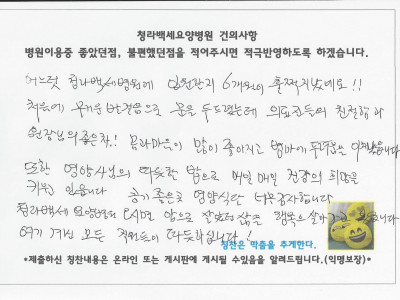 청라백세요양병원 건의사항
병원이용중 좋았던점, 불편했던점을 적어주시면 적극반영하도록 하겠습니다.
어느덧 청라백세병원에 입원한지 6개월이 훌쩍지났네요!!
처음에 무거운 발걸음으로 문을 두드렸는데 의료진들의 친절함과
원장님의 좋은 약! 몸과마음이 많이 좋아지고 밤마다 두려움을
또한 영양사님의 따뜻한 밥으로 매일 매일 건강의 희망을
키워 있습니다 참기 좋은 영양식단 너무감사합니다
청라백세요양병원 오시면 앞으로 삶 행복으
여기 계신 모든 직원들이 따듯하십니다!
칭찬은 막춤을 추게한다.
*제출하신 칭찬내용은 온라인 또는 게시판에 게시될 수있음을 알려드립니다.(익명보장)*